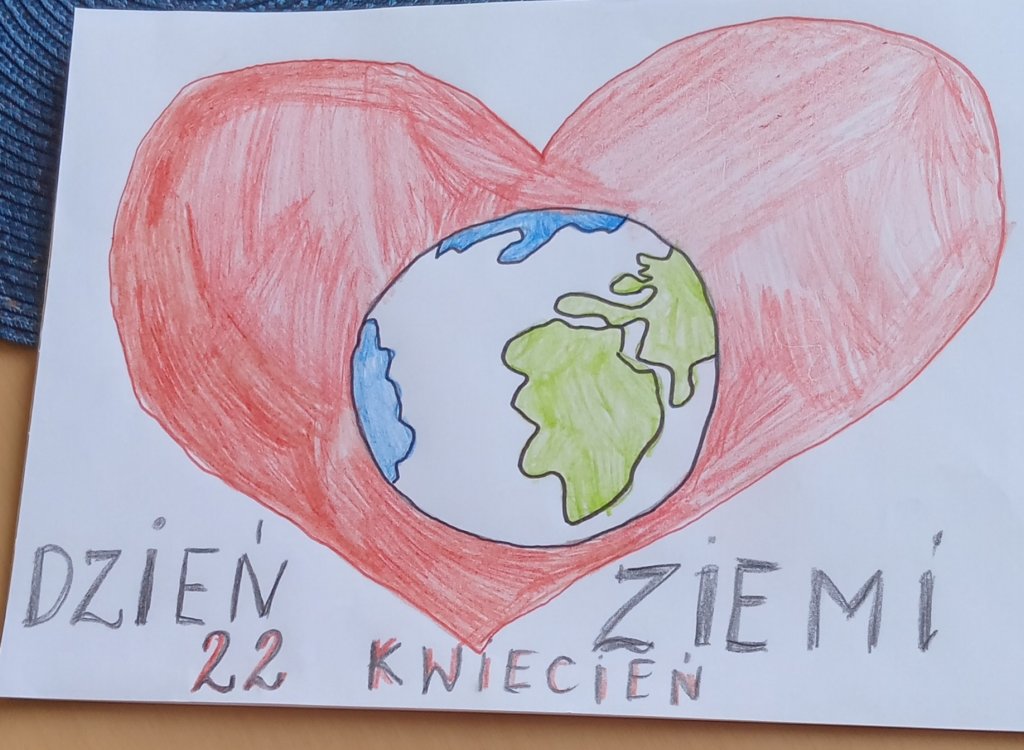 DZIEŃ ZIEMI
22 KWIECIEŃ